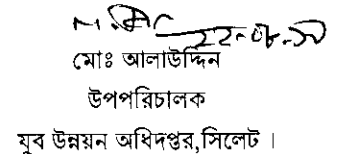 ২২-০৮-১০
মোঃ আলাউদ্দিন
উপপরিচালক
যুব উন্নয়ন অধিদপ্তর,সিলেট ।